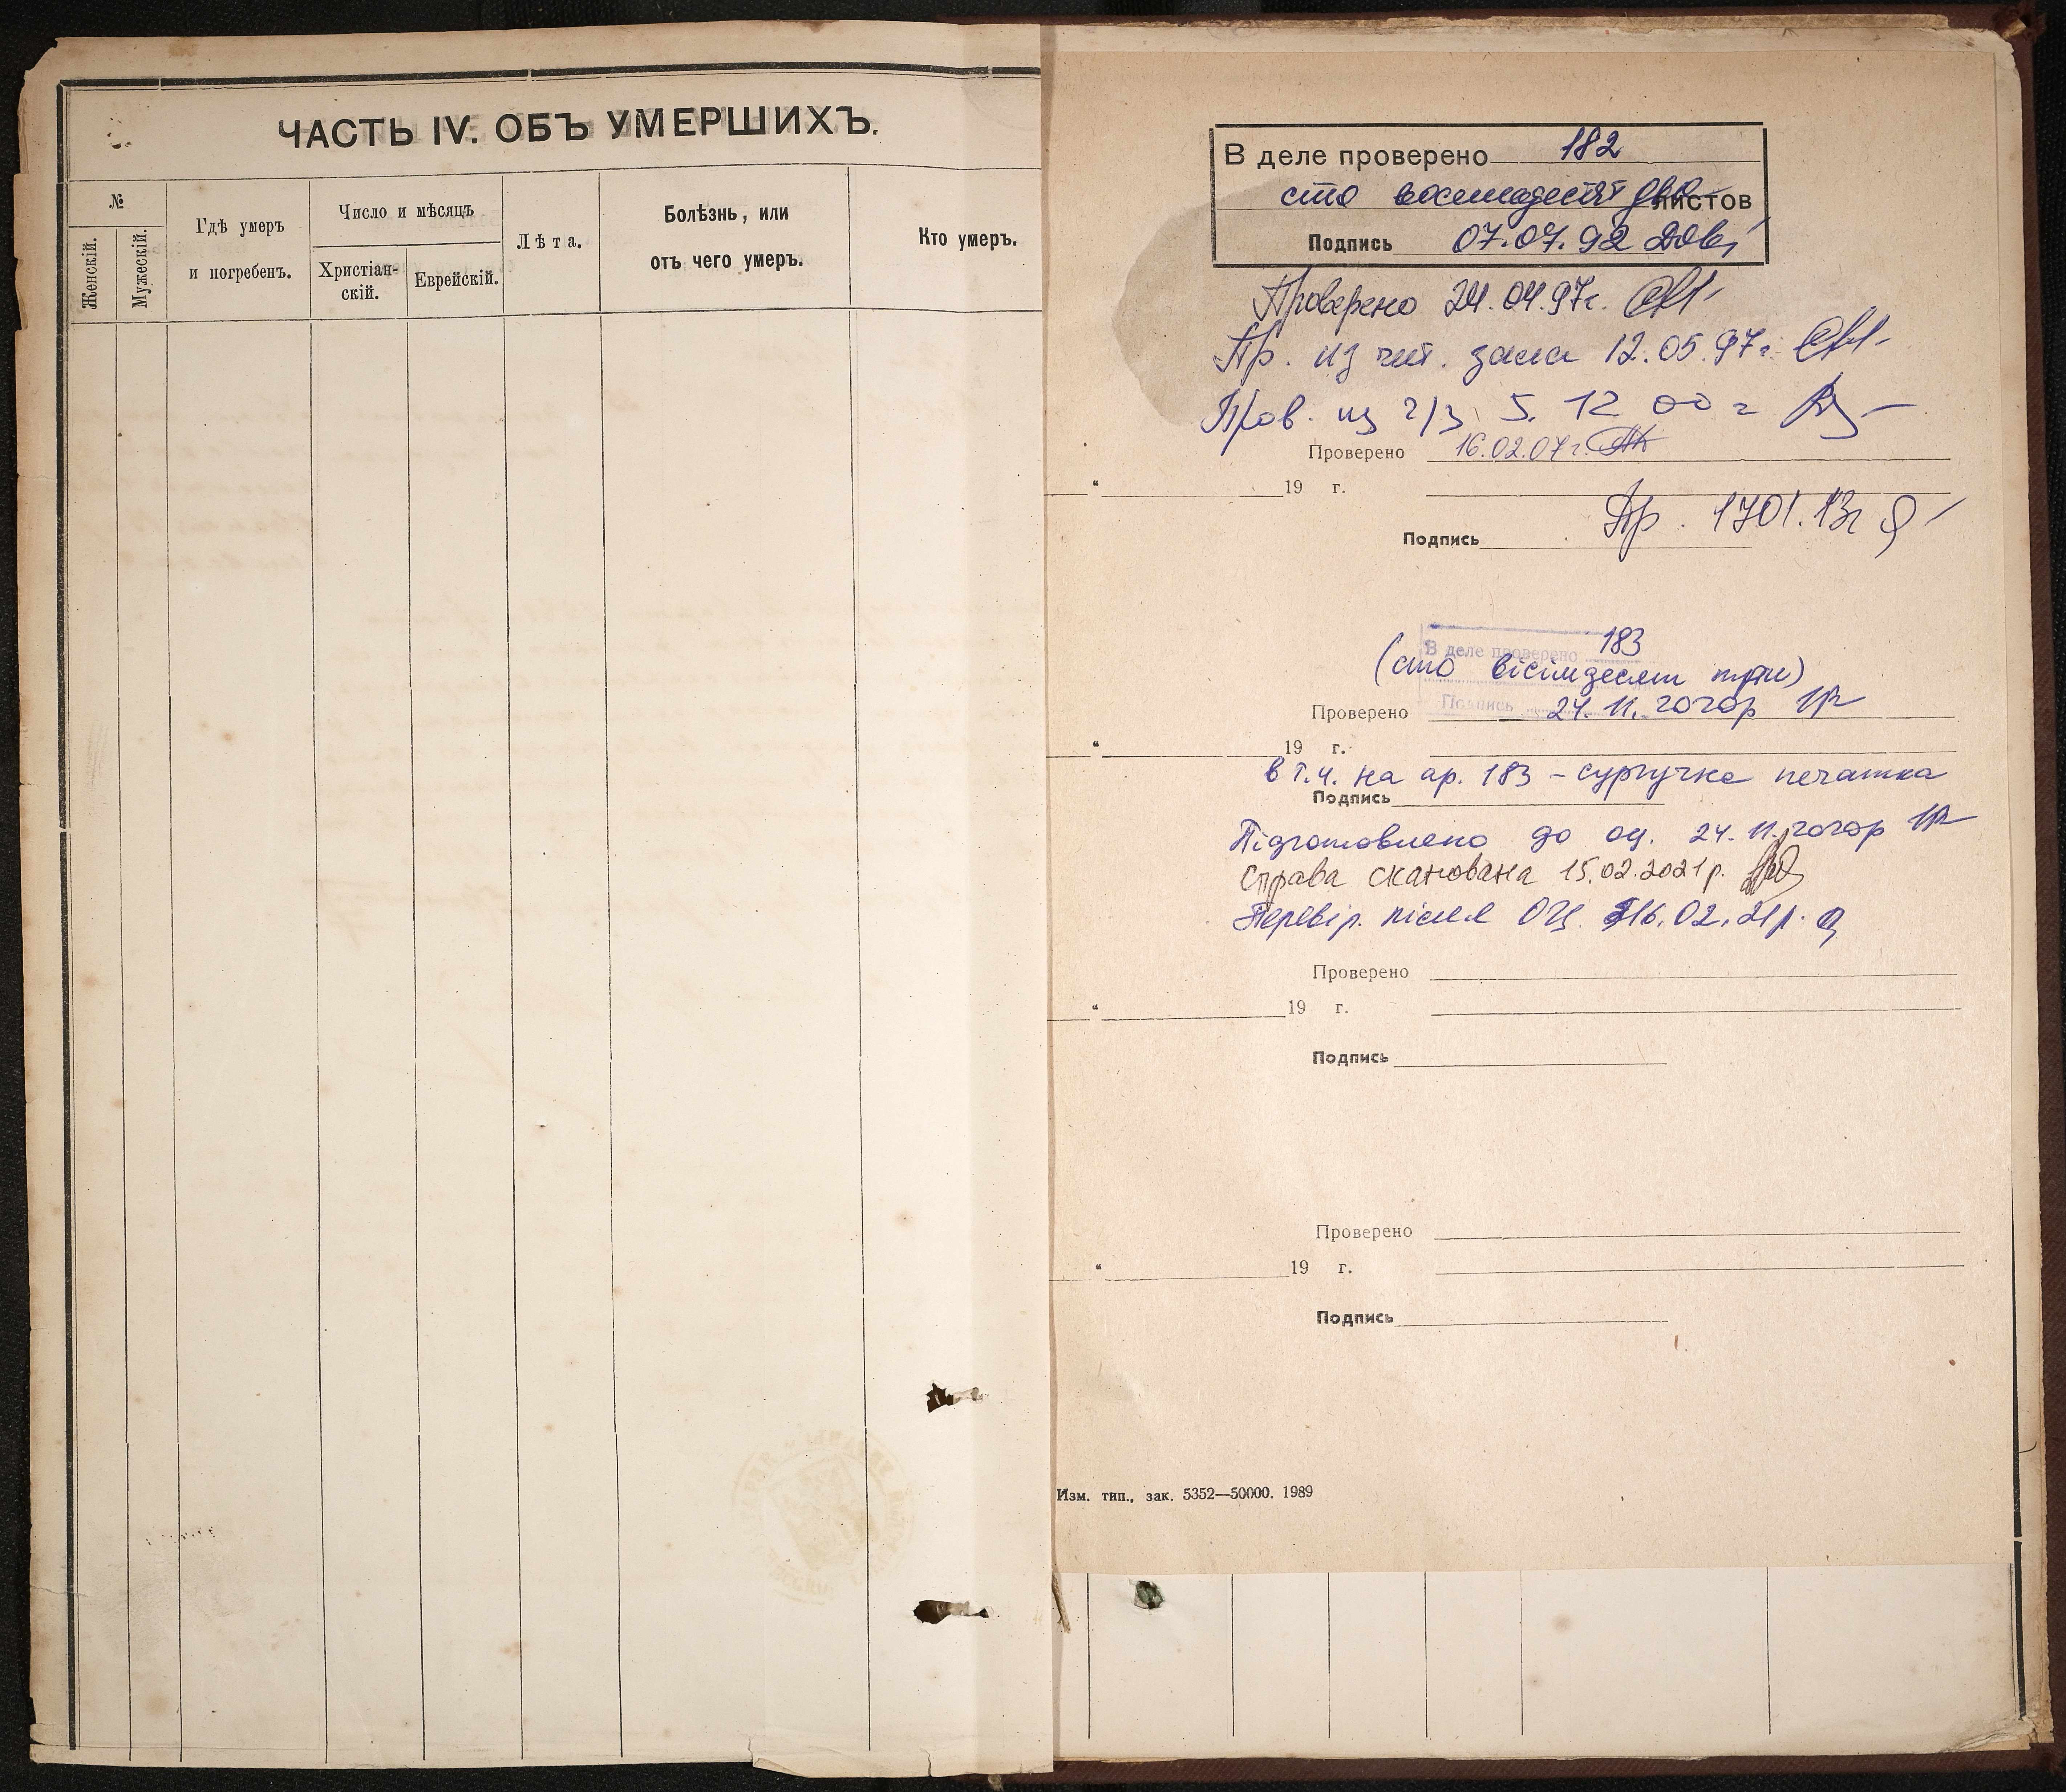 ЧАСТЬ IV. ОБЪ УМЕРШИХЪ.
№
Женскій.
Мужескій.
Гдѣ умеръ
и погребенъ.
Число и мѣсяцъ
Христіан-
скій.
Еврейскій.
Лѣта.
Болѣзнь, или
отъ чего умеръ.
Кто умеръ.
В деле проверено 182
сто восемьдесят два листов
Подпись 07.07.92
Проверено 24.04.97г.
Пр. из чит. зала 12.05.97г.
Пров. из ч/з 5. 12 00 г
Проверено 16.02.07г.
“ 19 г.
Пр. 1701.13г
Подпись
В деле проверено 183
(сто вісімдесят три)
Подпись
Проверено 24. 11. 2020р
“ 19 г.
в т.ч. на ар. 183 – сургучна печатка
Подпись
Підготовлено до оц. 24. 11. 2020р
Справа сканована 15.02.2021р.
Перевір. після ОЦ 16.02.21р.
Проверено
“ 19 г.
Подпись
Проверено
“ 19 г.
Подпись
Изм. тип., зак. 5352—50000. 1989